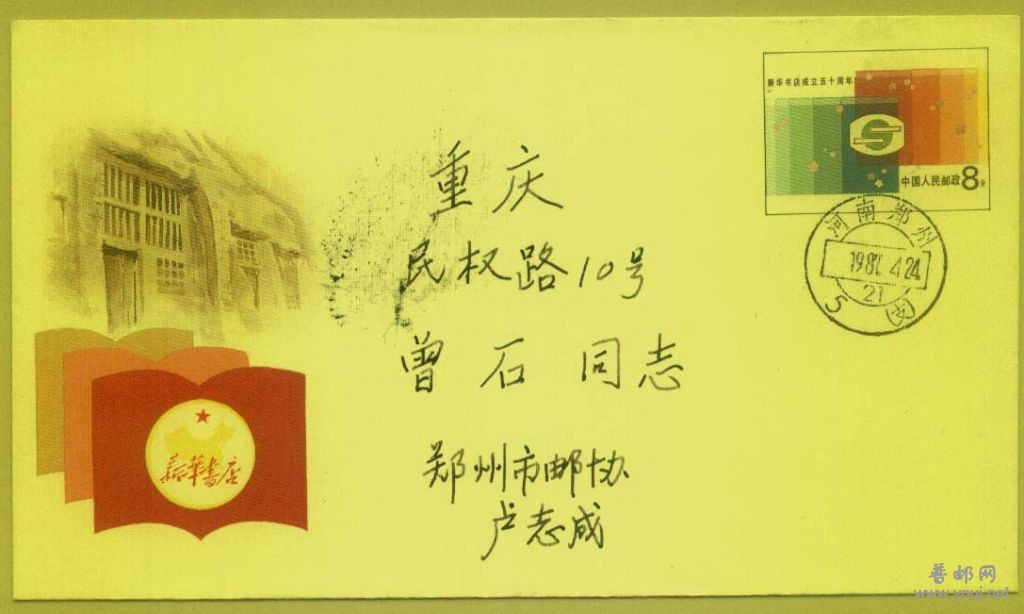 新华书店成立五十周年
中国人民邮政8分
河南郑州
1987.4.24
21
5(支)
重庆
民权路10号
曾石 同志
郑州市邮协
卢志成
新华书店
普邮网
www.youj.net